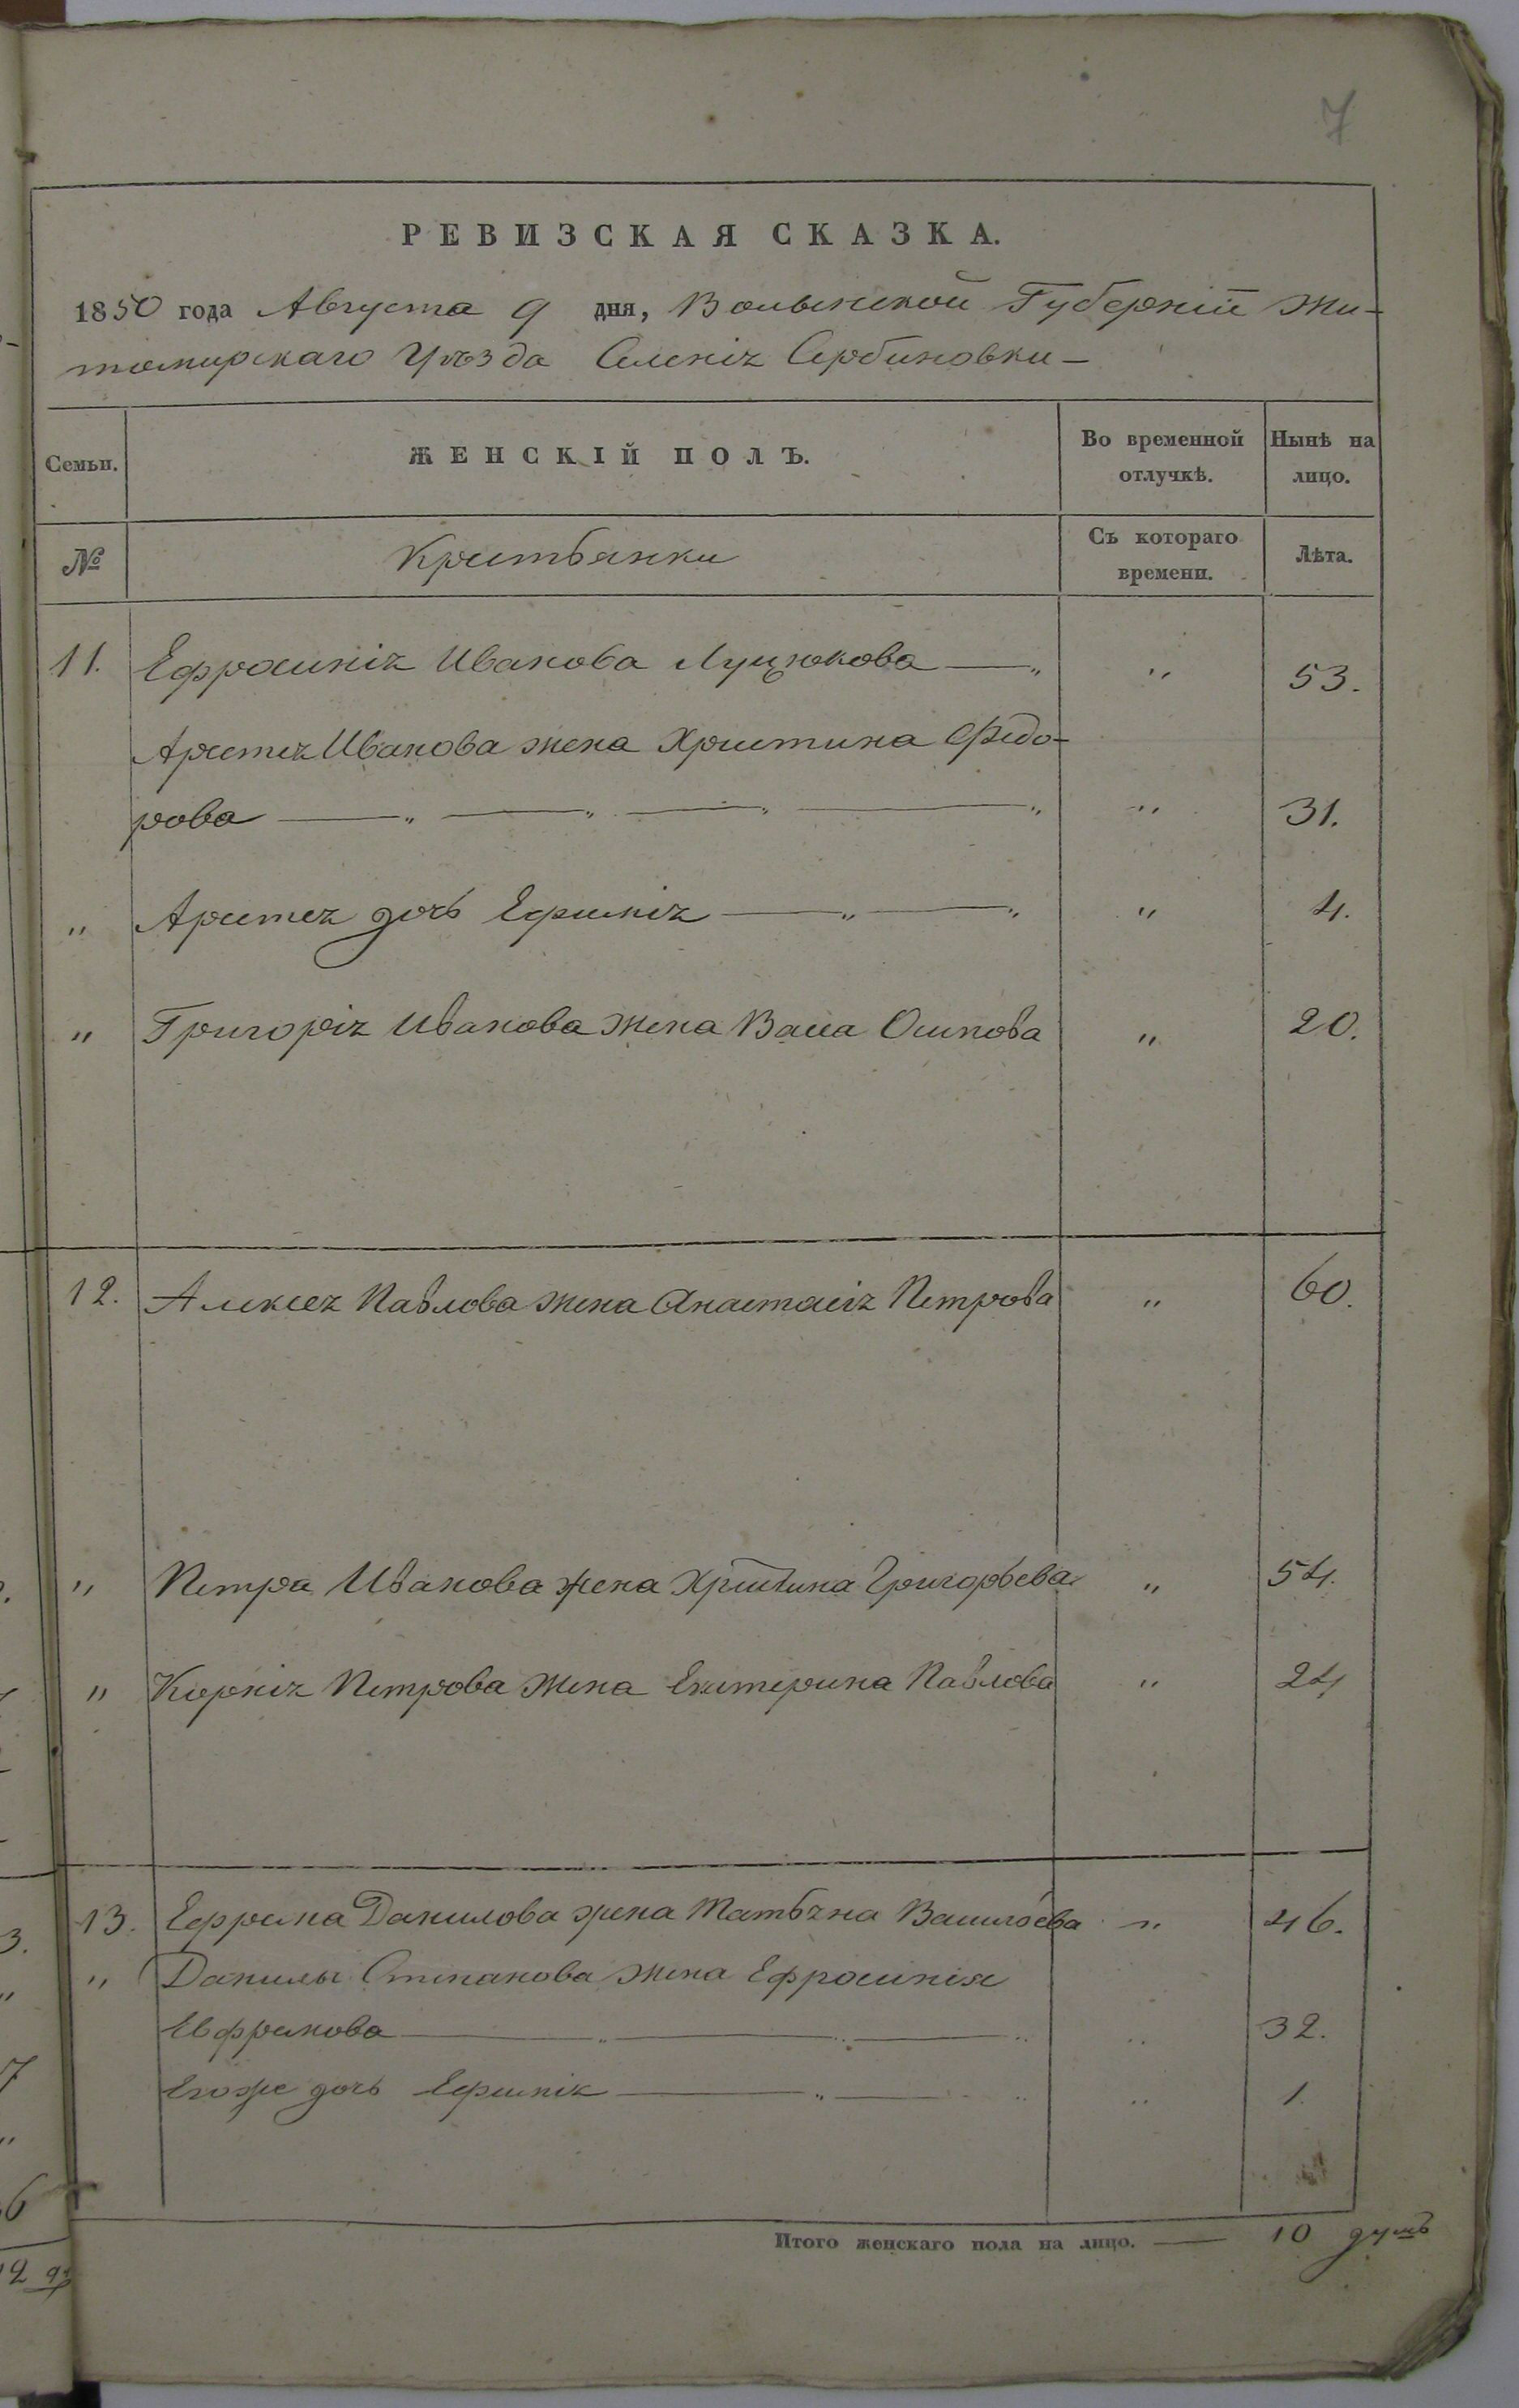 7
РЕВИЗСКАЯ СКАЗКА.
1850 года Августа 9 дня, Волынской Губерніи Жи-
томирскаго Уѣзда Селенія Сербиновки —
Семьи. ЖЕНСКІЙ ПОЛЪ. Во временной отлучкѣ. Нынѣ на лицо.
№ Крестьянки Съ котораго времени. Лѣта.
11. Ефросинія Иванова Луцюкова — „ „ 53.
Арстея Иванова жена Христина Ѳедо-
рова — „ — „ — „ — „ „ 31.
„ Арстея дочь Ефимія — „ — „ „ 4.
„ Григорія Иванова жена Васса Осипова „ 20.
12. Алексея Павлова жена Анастасія Петрова „ 60.
„ Петра Иванова жена Христина Григорьева „ 54.
„ Корнія Петрова жена Екатерина Павлова „ 24
13. Ефрема Данилова жена Татьяна Васильева „ 46.
„ Данилы Степанова жена Ефросинія
Ефремова — „ — „ — „ „ 32.
Егоже дочь Ефимія — „ — „ „ 1.
Итого женскаго пола на лицо. — 10 душъ